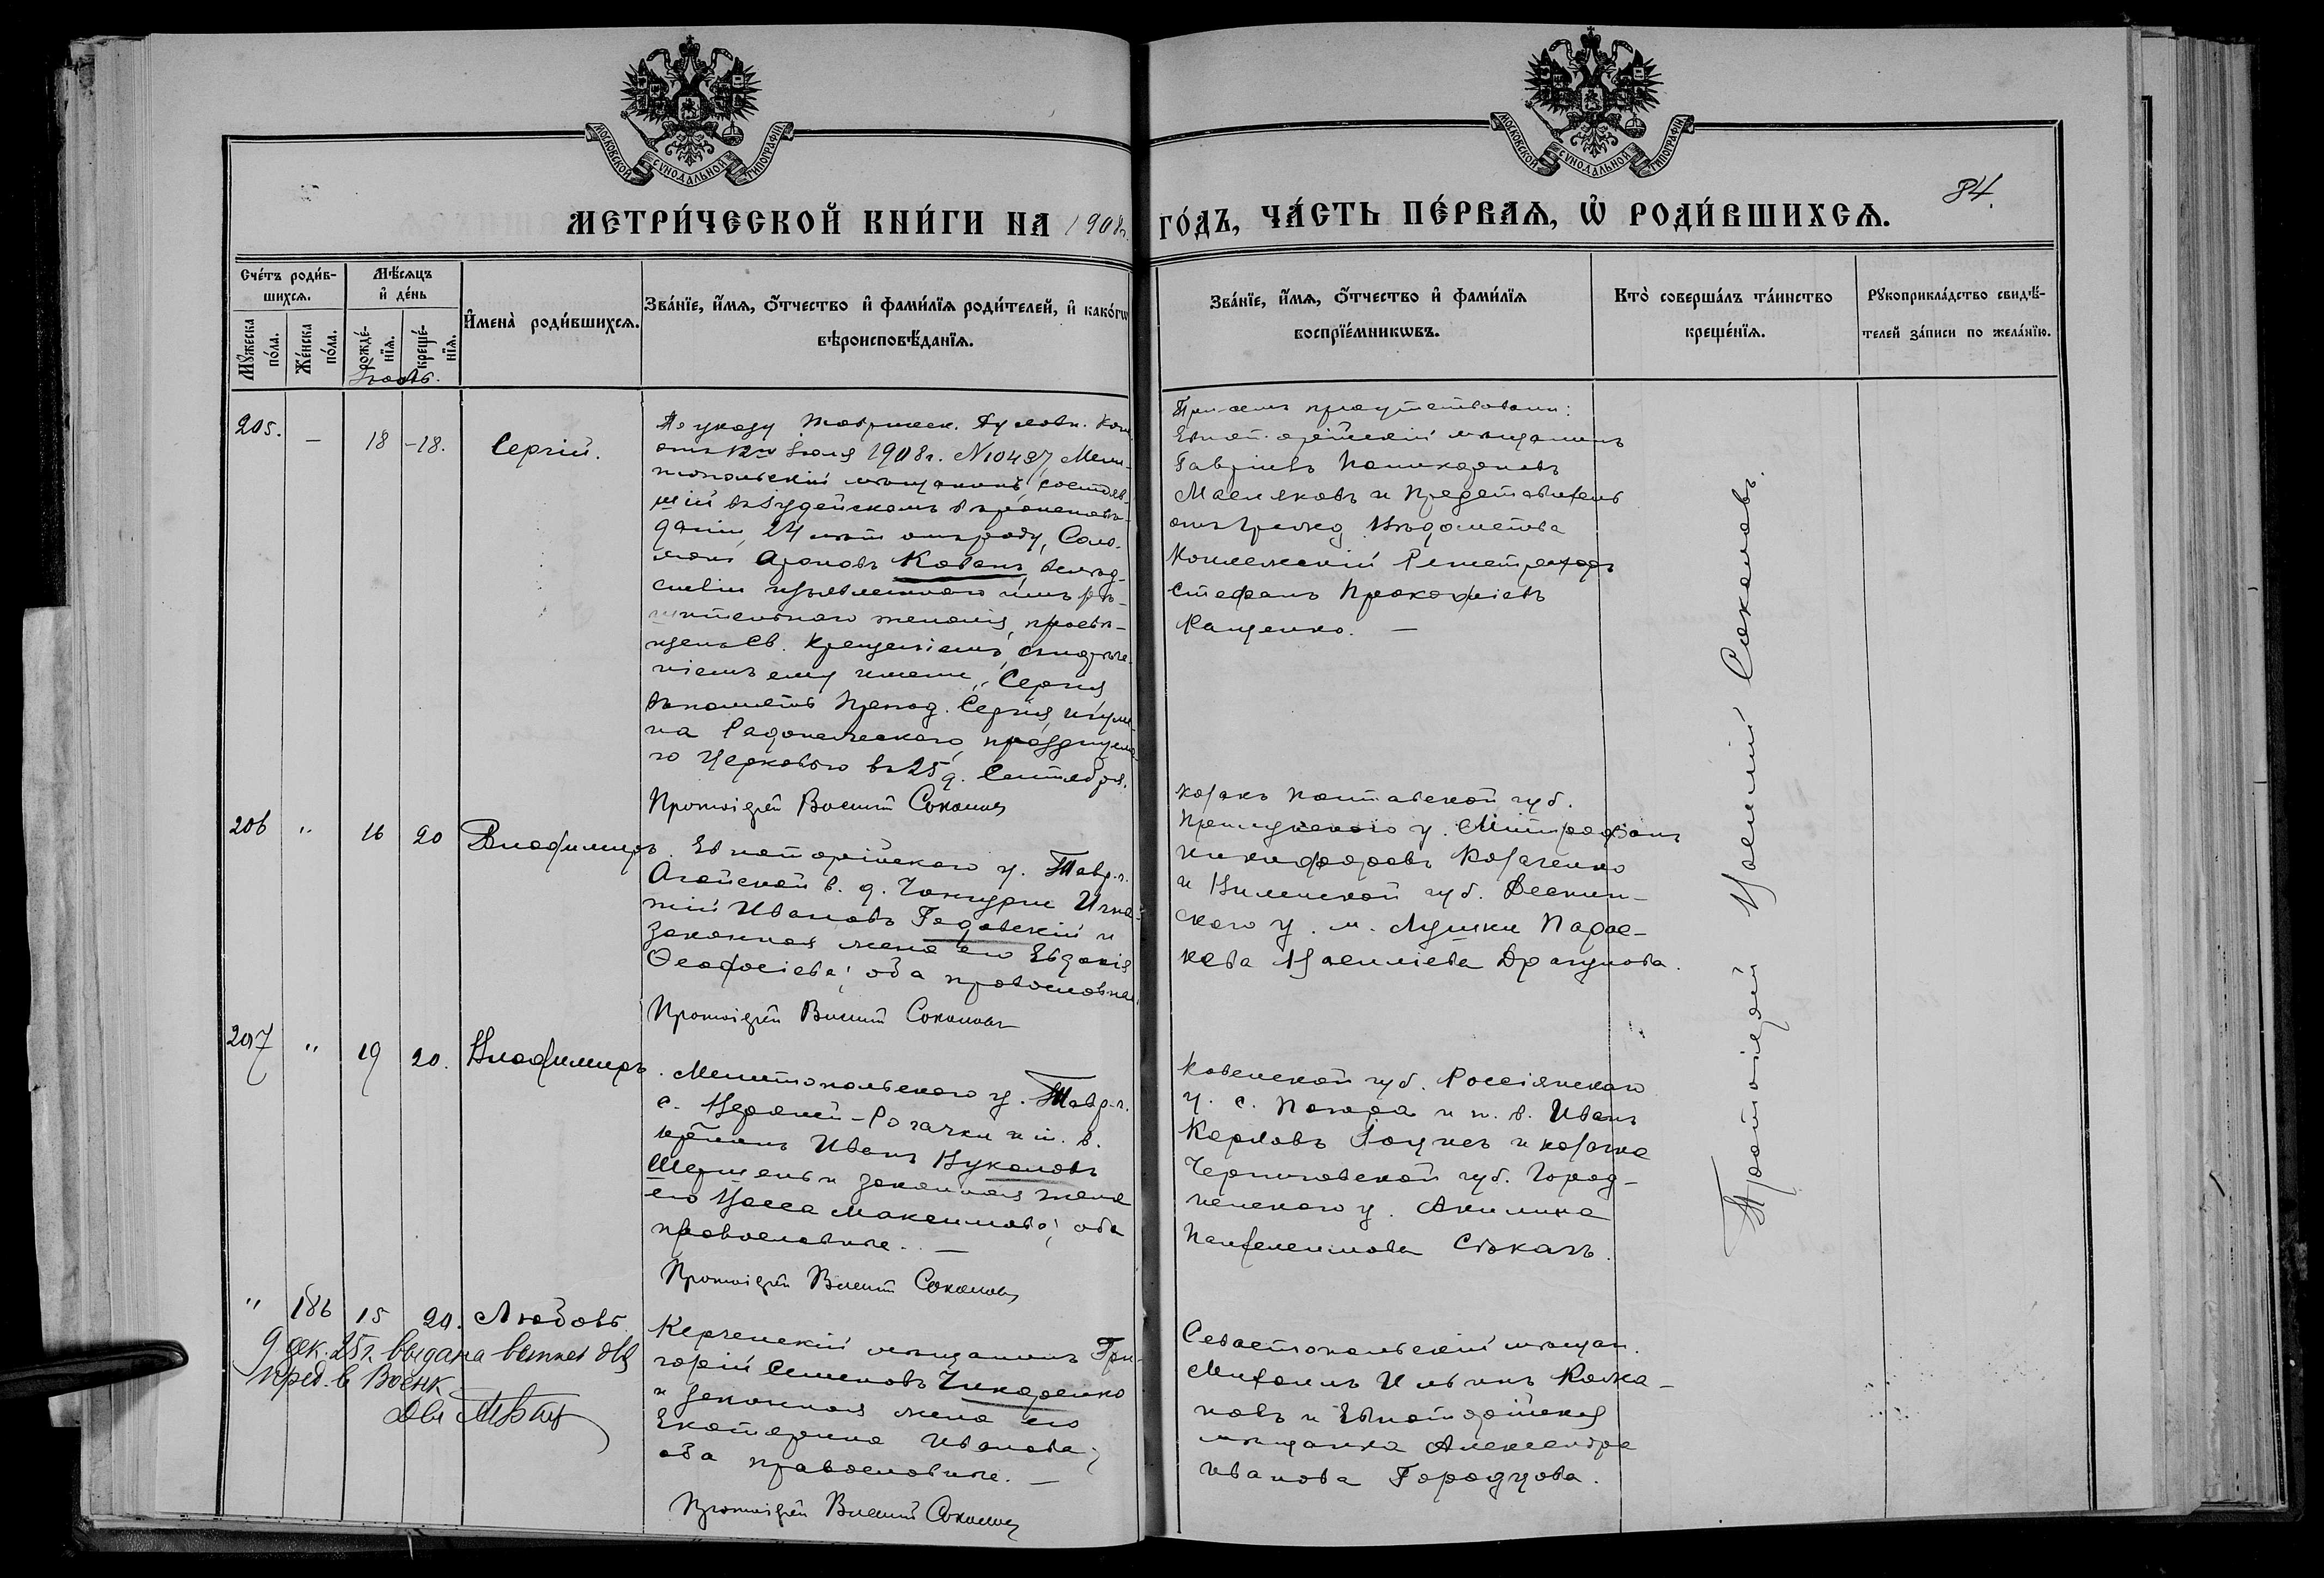 МОСКОВСКОЙ СѴНОДАЛЬНОЙ ТИПОГРАФІИ
МОСКОВСКОЙ СѴНОДАЛЬНОЙ ТИПОГРАФІИ
84.
МЕТРИ́ЧЕСКОЙ КНИ́ГИ НА 1908 г. ГО́ДЪ, ЧА́СТЬ ПЕ́РВАЯ, Ѡ РОДИ́ВШИХСЯ.
Сче́тъ роди́в-
шихся.
Му́жеска по́ла.
Же́нска по́ла.
Мѣ́сяцъ
и де́нь
рожде́-
нїя.
креще́-
нїя.
Іюль.
Имена̀ роди́вшихся.
Зва́нїе, и́мя, о́тчество и фами́лїя роди́телей, и како́гѡ
вѣроисповѣ́данїя.
Зва́нїе, и́мя, о́тчество и фами́лїя
воспрїе́мникѡвъ.
Кто̀ соверша́лъ та́инство
креще́нїя.
Рукоприкла́дство свидѣ́-
телей за́писи по жела́нїю.
205. — 18 – 18. Сергій.
По указу Тавричск. Духовн. Кон.
отъ 12го Іюля 1908 г. N 10487, Мели-
топольскій мѣщанинъ, состояв-
шій въ Іудейскомъ вѣроисповѣ-
даніи, 24 лѣтъ отъ роду, Соло-
монъ Ароновъ Коганъ, вслѣд-
ствіи изъявленнаго имъ рѣ-
шительнаго желанія, просвѣ-
щенъ Св. Крещеніемъ, съ нарече-
ніемъ ему имени „Сергія
въ память Препод. Сергія, игуме-
на Радонежскаго, празднуема-
го Церковью въ 25 д. Сентября.
Протоіерей Василій Соколовъ
При семъ присутствовали:
Евпаторійскій мѣщанинъ
Гавріилъ
Маслаковъ и Представитель
отъ Гражд. Вѣдомства
Коллежскій Регистраторъ
Стефанъ Прокофіевъ
Кащенко. —
206 " 16 20 Владимиръ.
Евпаторійскаго у. Тавр. г.
Агайской в. д. Чокурчи Игна-
тій Ивановъ Годовскій и
законная жена его Евдокія
Ѳеодосіева; оба православные
Протоіерей Василій Соколовъ
козакъ Полтавской губ.
Прилукскаго у. Митрофанъ
Никифоровъ Козаченко
и Виленской губ. Дисни-
скаго у. м. Лужки Парас-
кева Василіева Драгунова.
207 " 19 20. Владимиръ.
Мелитопольскаго у. Тавр. г.
с. Верхній-Рогачки и т. в.
кр-нинъ Иванъ Вуколовъ
Шершень и законная жена
его Васса Максимова; оба
православные. —
Протоіерей Василій Соколовъ
Ковенской губ. Россіянскаго
у. с. и т. в. Иванъ
Карловъ и козачка
Черниговской губ. Город-
ненскаго у. Акилина
Пантелеимова Сѣкачъ.
" 186 15 20. Любовь.
9 дек. 25 г. выдана выпись для
пред. в Военк.
Керченскій мѣщанинъ Гри-
горій Семеновъ Чикаренко
и законная жена его
Екатерина Иванова;
оба православные. —
Протоіерей Василій Соколовъ
Севастопольскій мѣщан.
Михаилъ Ильинъ Колка-
новъ и Евпаторійская
мѣщанка Александра
Иванова Городцова.
Протоіерей Василій Соколовъ.